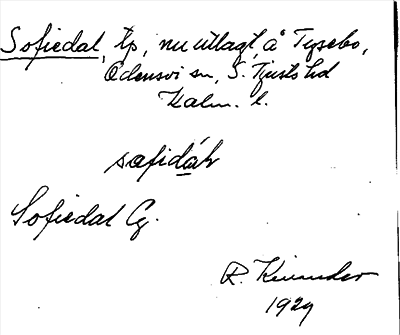 Sofiedal, tp, nu utlagt, å Tysebo,
Odensvi sn, S. Tjusts hd
Kalm. l.
sofidáh
Sofiedal Cg.
R.
1929